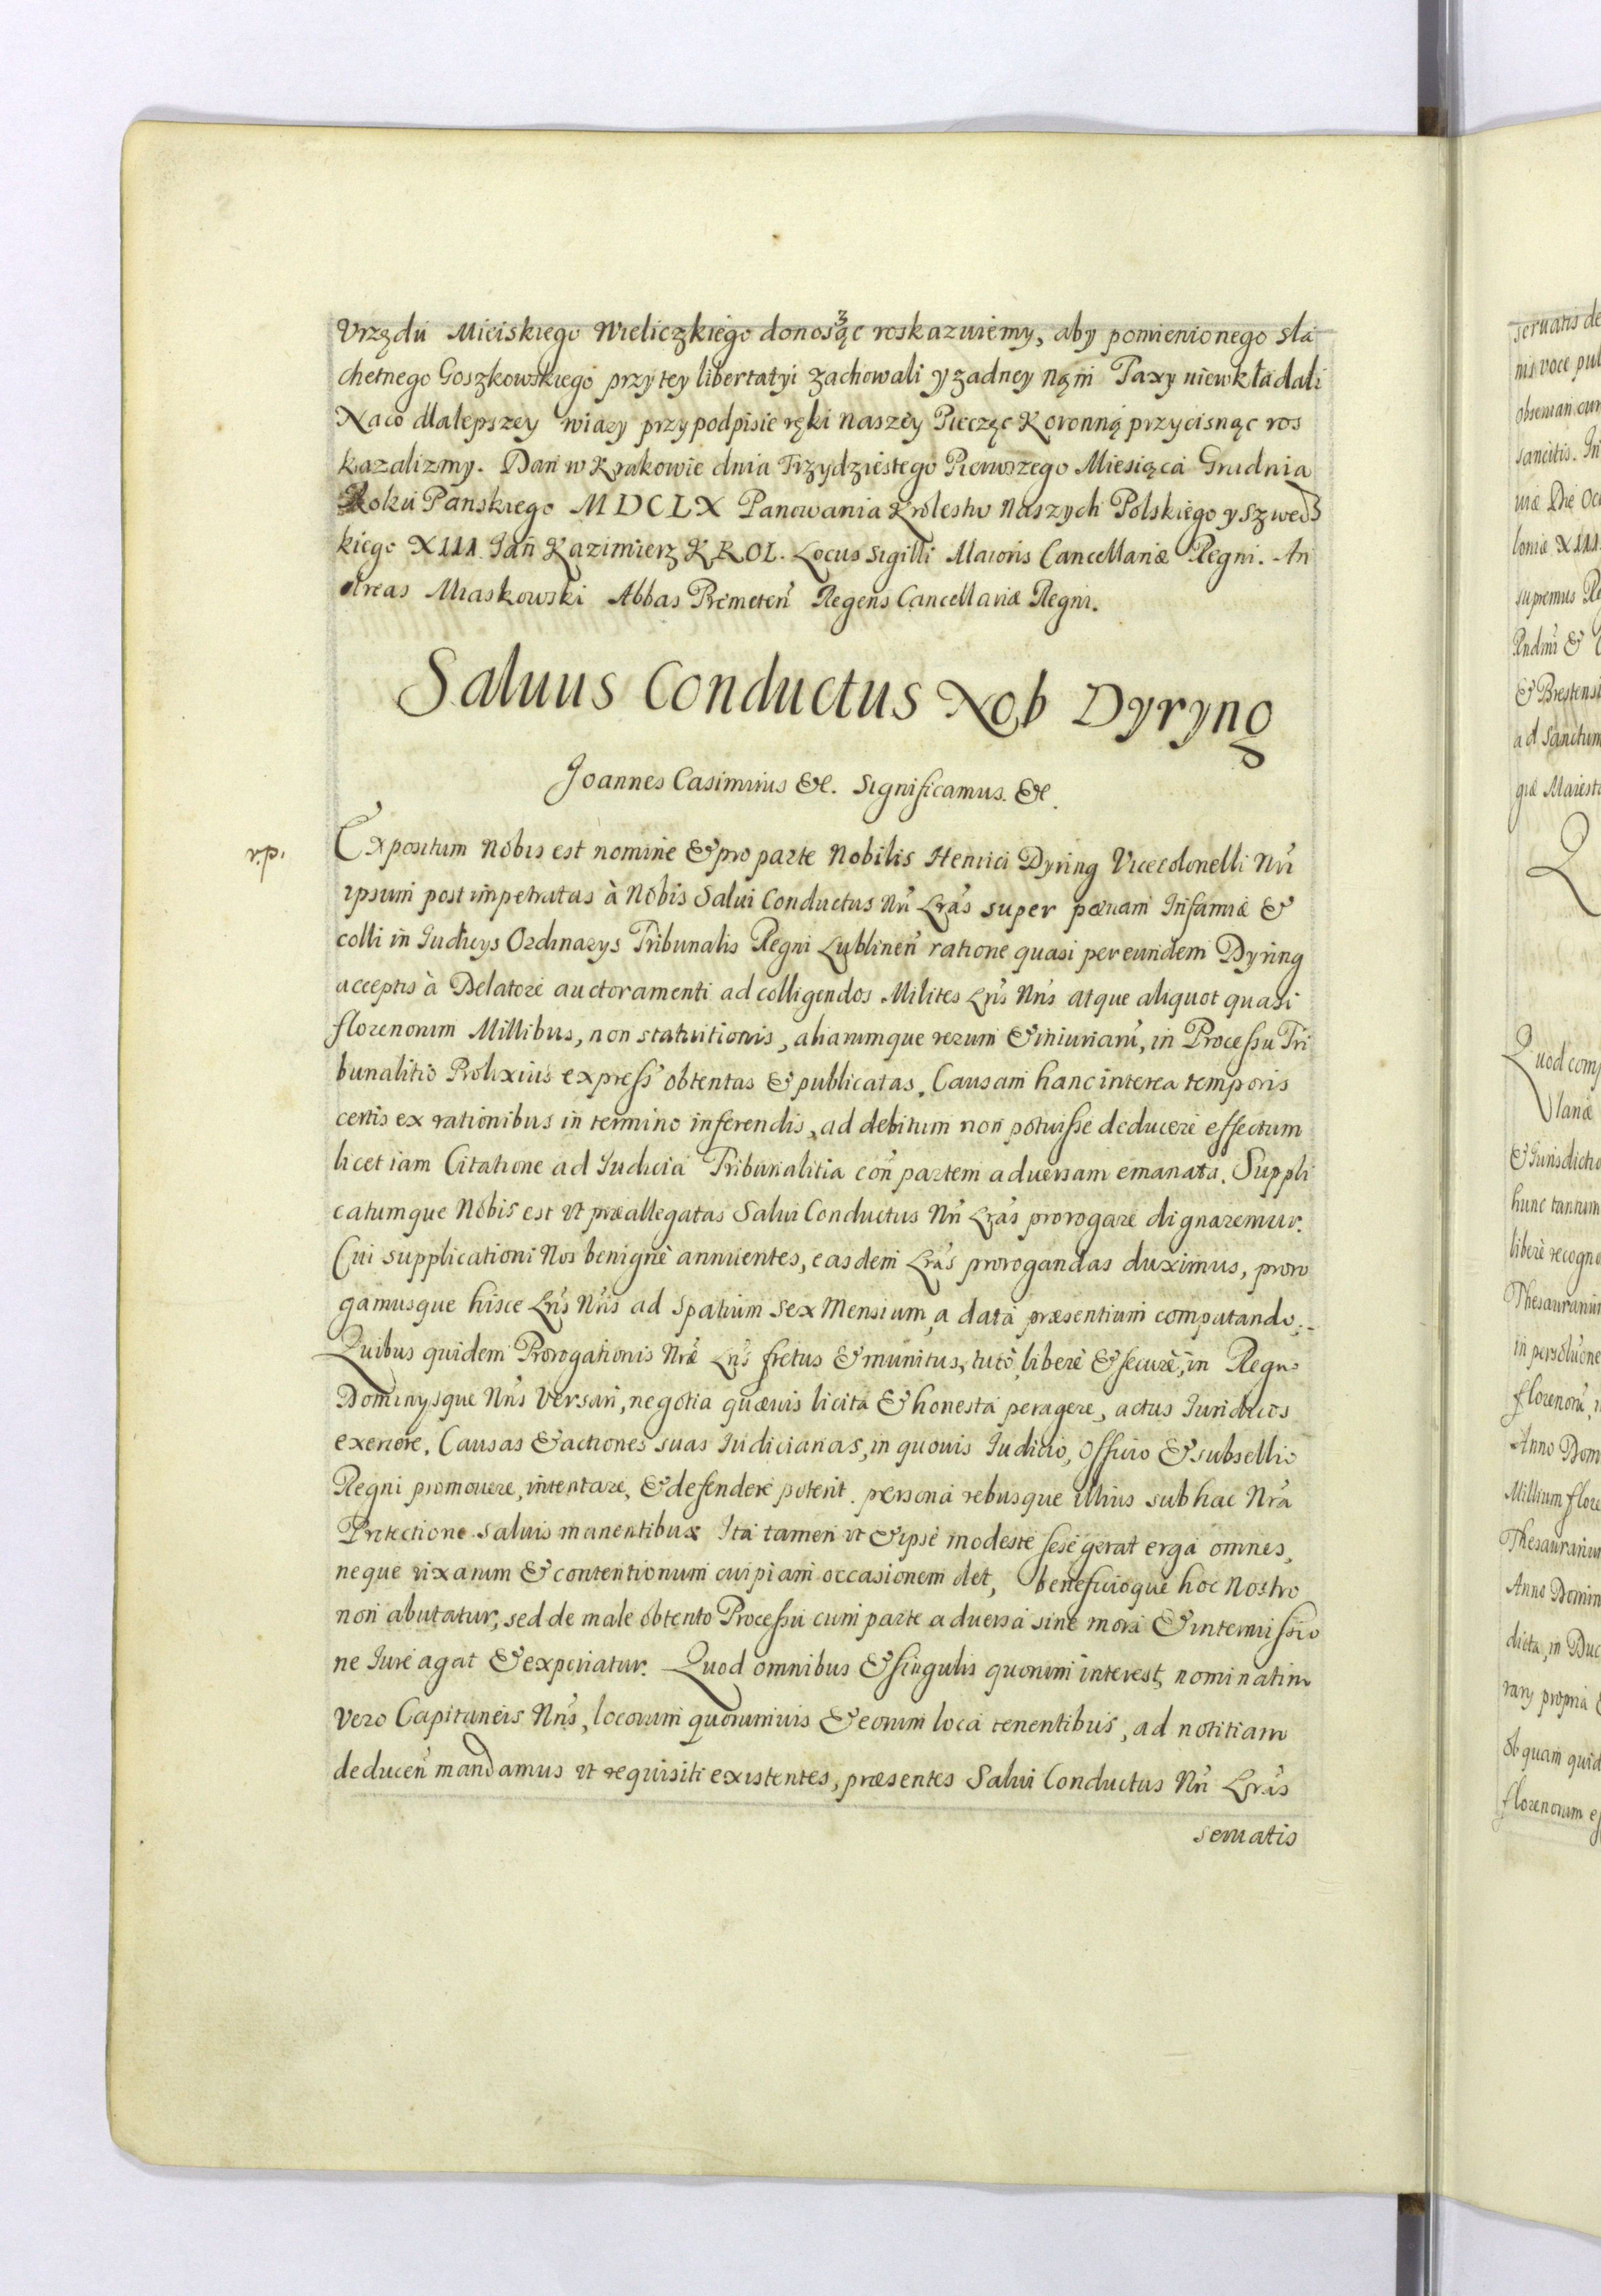 Vrzędu Mieiskiego Wieliczkiego donosząc roskazuiemy, aby pomienionego Sla
chetnego Goszkowskiego przy tey libertatyi zachowali y zadney nąm Taxy niewkładali
Naco dla lepszey wiary przy podpisie ręki naszey Pieczęc Koronną przycisnąc ros
kazalizmy. Dan w Krakowie dnia Trzydziestego Pierwszego Miesiąca Grudnia
Roku Panskiego MDCLX Panowania Krolestw Naszych Polskiego y Szweds
kiego XIII Jan Kazimierz KROL. Locus Sigilli Maioris Cancellariæ Regni. An
dreas Miaskowski Abbas Premeten̄ Regens Cancellariæ Regni.
Saluus Conductus Nob Dyryng
Joannes Casimirus &c. Significamus. &c.
Expositum Nobis est nomine & pro parte Nobilis Henrici Dyring Vicecolonelli Nri
ipsum post impetratas à Nobis Salui Conductus Nri Lras super pænam Infamiæ &
colli in Iudicys Ordinarys Tribunalis Regni Lublinen̄ ratione quasi per eundem Dyring
acceptis à Delatore auctoramenti ad colligendos Milites Lris Nris atque aliquot quasi
florenorum Millibus, non statuitionis, aliarumque rerum & iniuriarū, in Processu Tri
bunalitio Prolixius express̄ obtentas & publicatas, Causam hanc interea temporis
certis ex rationibus in termino inferendis, ad debitum non potuisse deducere effectum
licet iam Citatione ad Iudicia Tribunalitia con̄ partem aduersam emanata. Suppli
catumque Nobis est vt præallegatas Salui Conductus Nri Lras prorogare dignaremur.
Cui supplicationi Nos benignè annuentes, easdem Lras prorogandas duximus, proro
gamusque hisce Lris Nris ad spatium sex Mensium, a data præsentium computando.
Quibus quidem Prorogationis Nræ Lris fretus & munitus, tutò, liberè & securè, in Regno
Dominysque Nris versari, negotia quæuis licita & honesta peragere, actus Iuridicos
exercere, Causas & actiones suas Iudiciarias, in quouis Iudicio, Officio & subsellio
Regni promouere, intentare, & defendere poterit. persona rebusque illius sub hac Nra
Protectione saluis manentibus Ita tamen vt & ipse modeste sese gerat erga omnes,
neque rixarum & contentionum cuipiam occasionem det, beneficioque hoc Nostro
non abutatur, sed de male obtento Processu cum parte aduersa sine mora & intermissio
ne Iure agat & experiatur. Quod omnibus & singulis quorum interest, nominatim
vero Capitaneis Nris, locorum quorumuis & eorum loca tenentibus, ad notitiam
deducen̄ mandamus vt requisiti existentes, præsentes Salui Conductus Nri Lras
seruatis